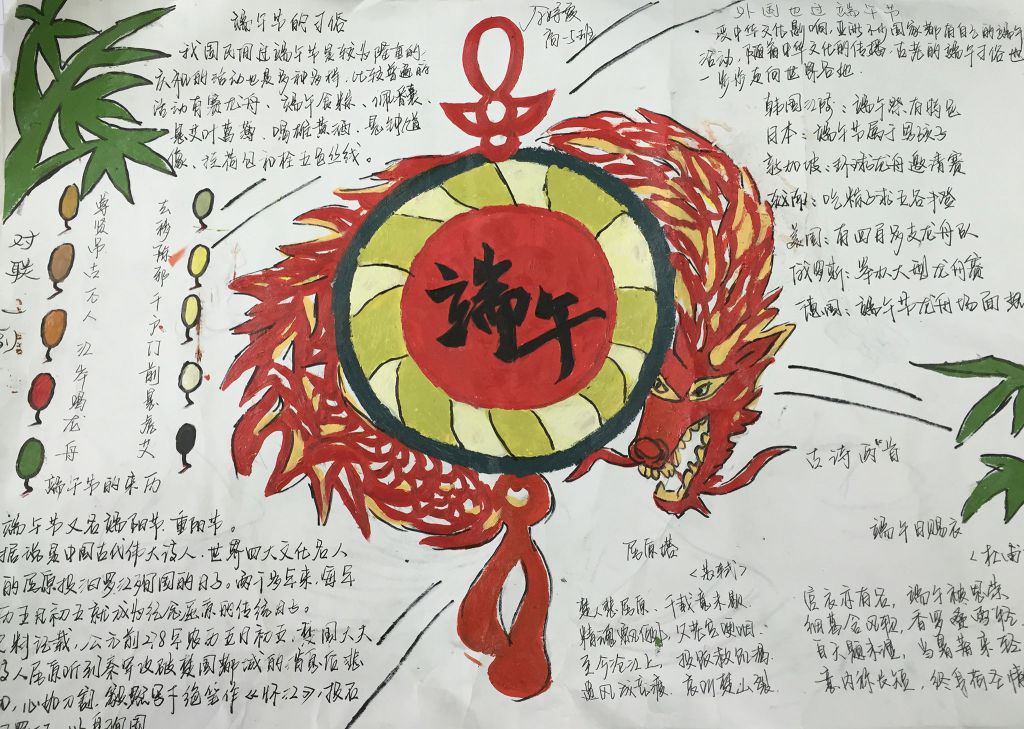 端午节的习俗
我国民间过端午节是较为隆重的.
庆祝的活动也是多种多样.比较普通的
活动有赛龙舟、端午食粽、佩香囊、
悬艾叶菖蒲、喝雄黄酒、悬钟馗
像、拴荷包和拴五色丝线。
高一5班
外国也过端午节
受中华文化影响,亚洲不少国家都有自己的端午
活动,随着中华文化的传播,古老的端午习俗也
一步步走向世界各地.
韩国江陵:端午祭有特色
日本:端午节属于男孩子
新加坡:环球龙舟邀请赛
越南:吃粽子求五谷丰登
美国:有四百多支龙舟队
俄罗斯:举办大型龙舟赛
德国:端午节龙舟场面
对联
尊贤吊古万人江华喝龙舟
去秽除邪千户门前悬虎艾
端午
端午节的来历
端午节又名端阳节、重阳节。
据说是中国古代伟大诗人、世界四大文化名人
的屈原投汨罗江殉国的日子。两千多年来,每年
五月初五就成为纪念屈原的传统日。
史料记载,公元前278年农历五月初五,楚国大夫
人屈原听到秦军攻破楚国都城的消息后悲
心如刀割,毅然写下绝笔作《怀沙》,投石
古诗两首
屈原塔
<苏轼>
楚人悲屈原,千载意未歇
精魂飘何,父老空哽咽.
至今沧江上,投饭救饥渴
遗风成竞渡,哀叫楚山裂
端午日赐衣
宫衣亦有名,端午被恩荣
细葛含风软,香罗叠雪轻
自天题不湿,当暑著来轻
意内称长短,终身荷圣情